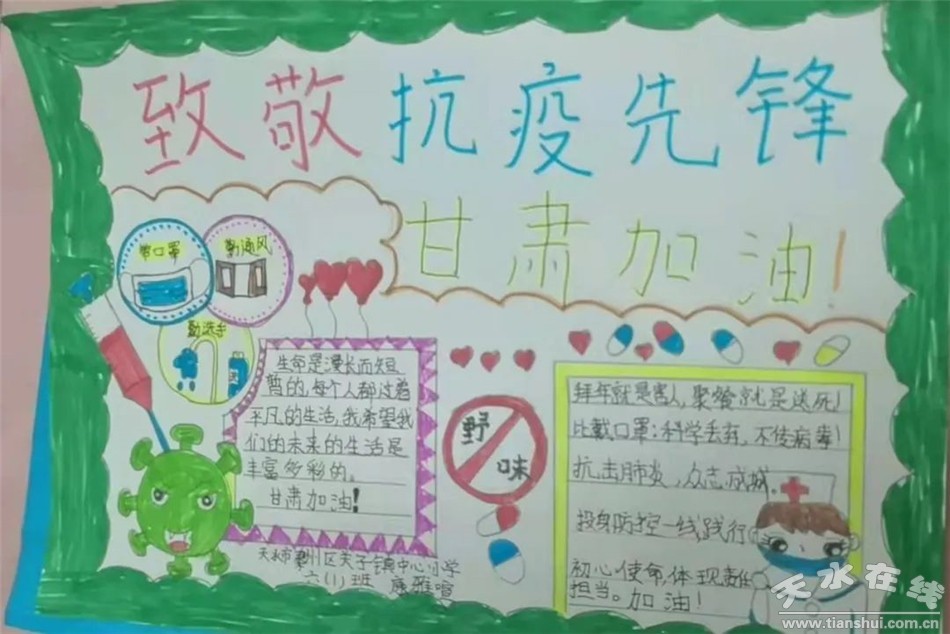 致敬抗疫先锋
甘肃加油!
带口罩
勤通风
勤洗手
生命是漫长而短
暂的,每个人都过着
平凡的生活,我希望我
们的未来的生活是
丰富多彩的。
甘肃加油!
野味
拜年就是害人,聚餐就是送死!
比戴口罩:科学丢弃,不传病毒!
抗击肺炎,众志成城.
投身防控一线,践行
初心使命,体现责任
担当。加油!
天水市秦州区关子镇中心小学
六(1)班 康雅喧
天水在线
www.tianshui.com.cn